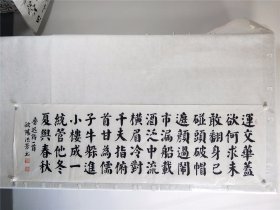 運交華蓋
欲何求未
敢翻身已
碰頭破帽
遮顏過鬧
市漏船載
酒泛中流
橫眉冷對
千夫指俯
首甘為孺
子牛躲進
小樓成一
統管他冬
夏與春秋
魯迅詩一首